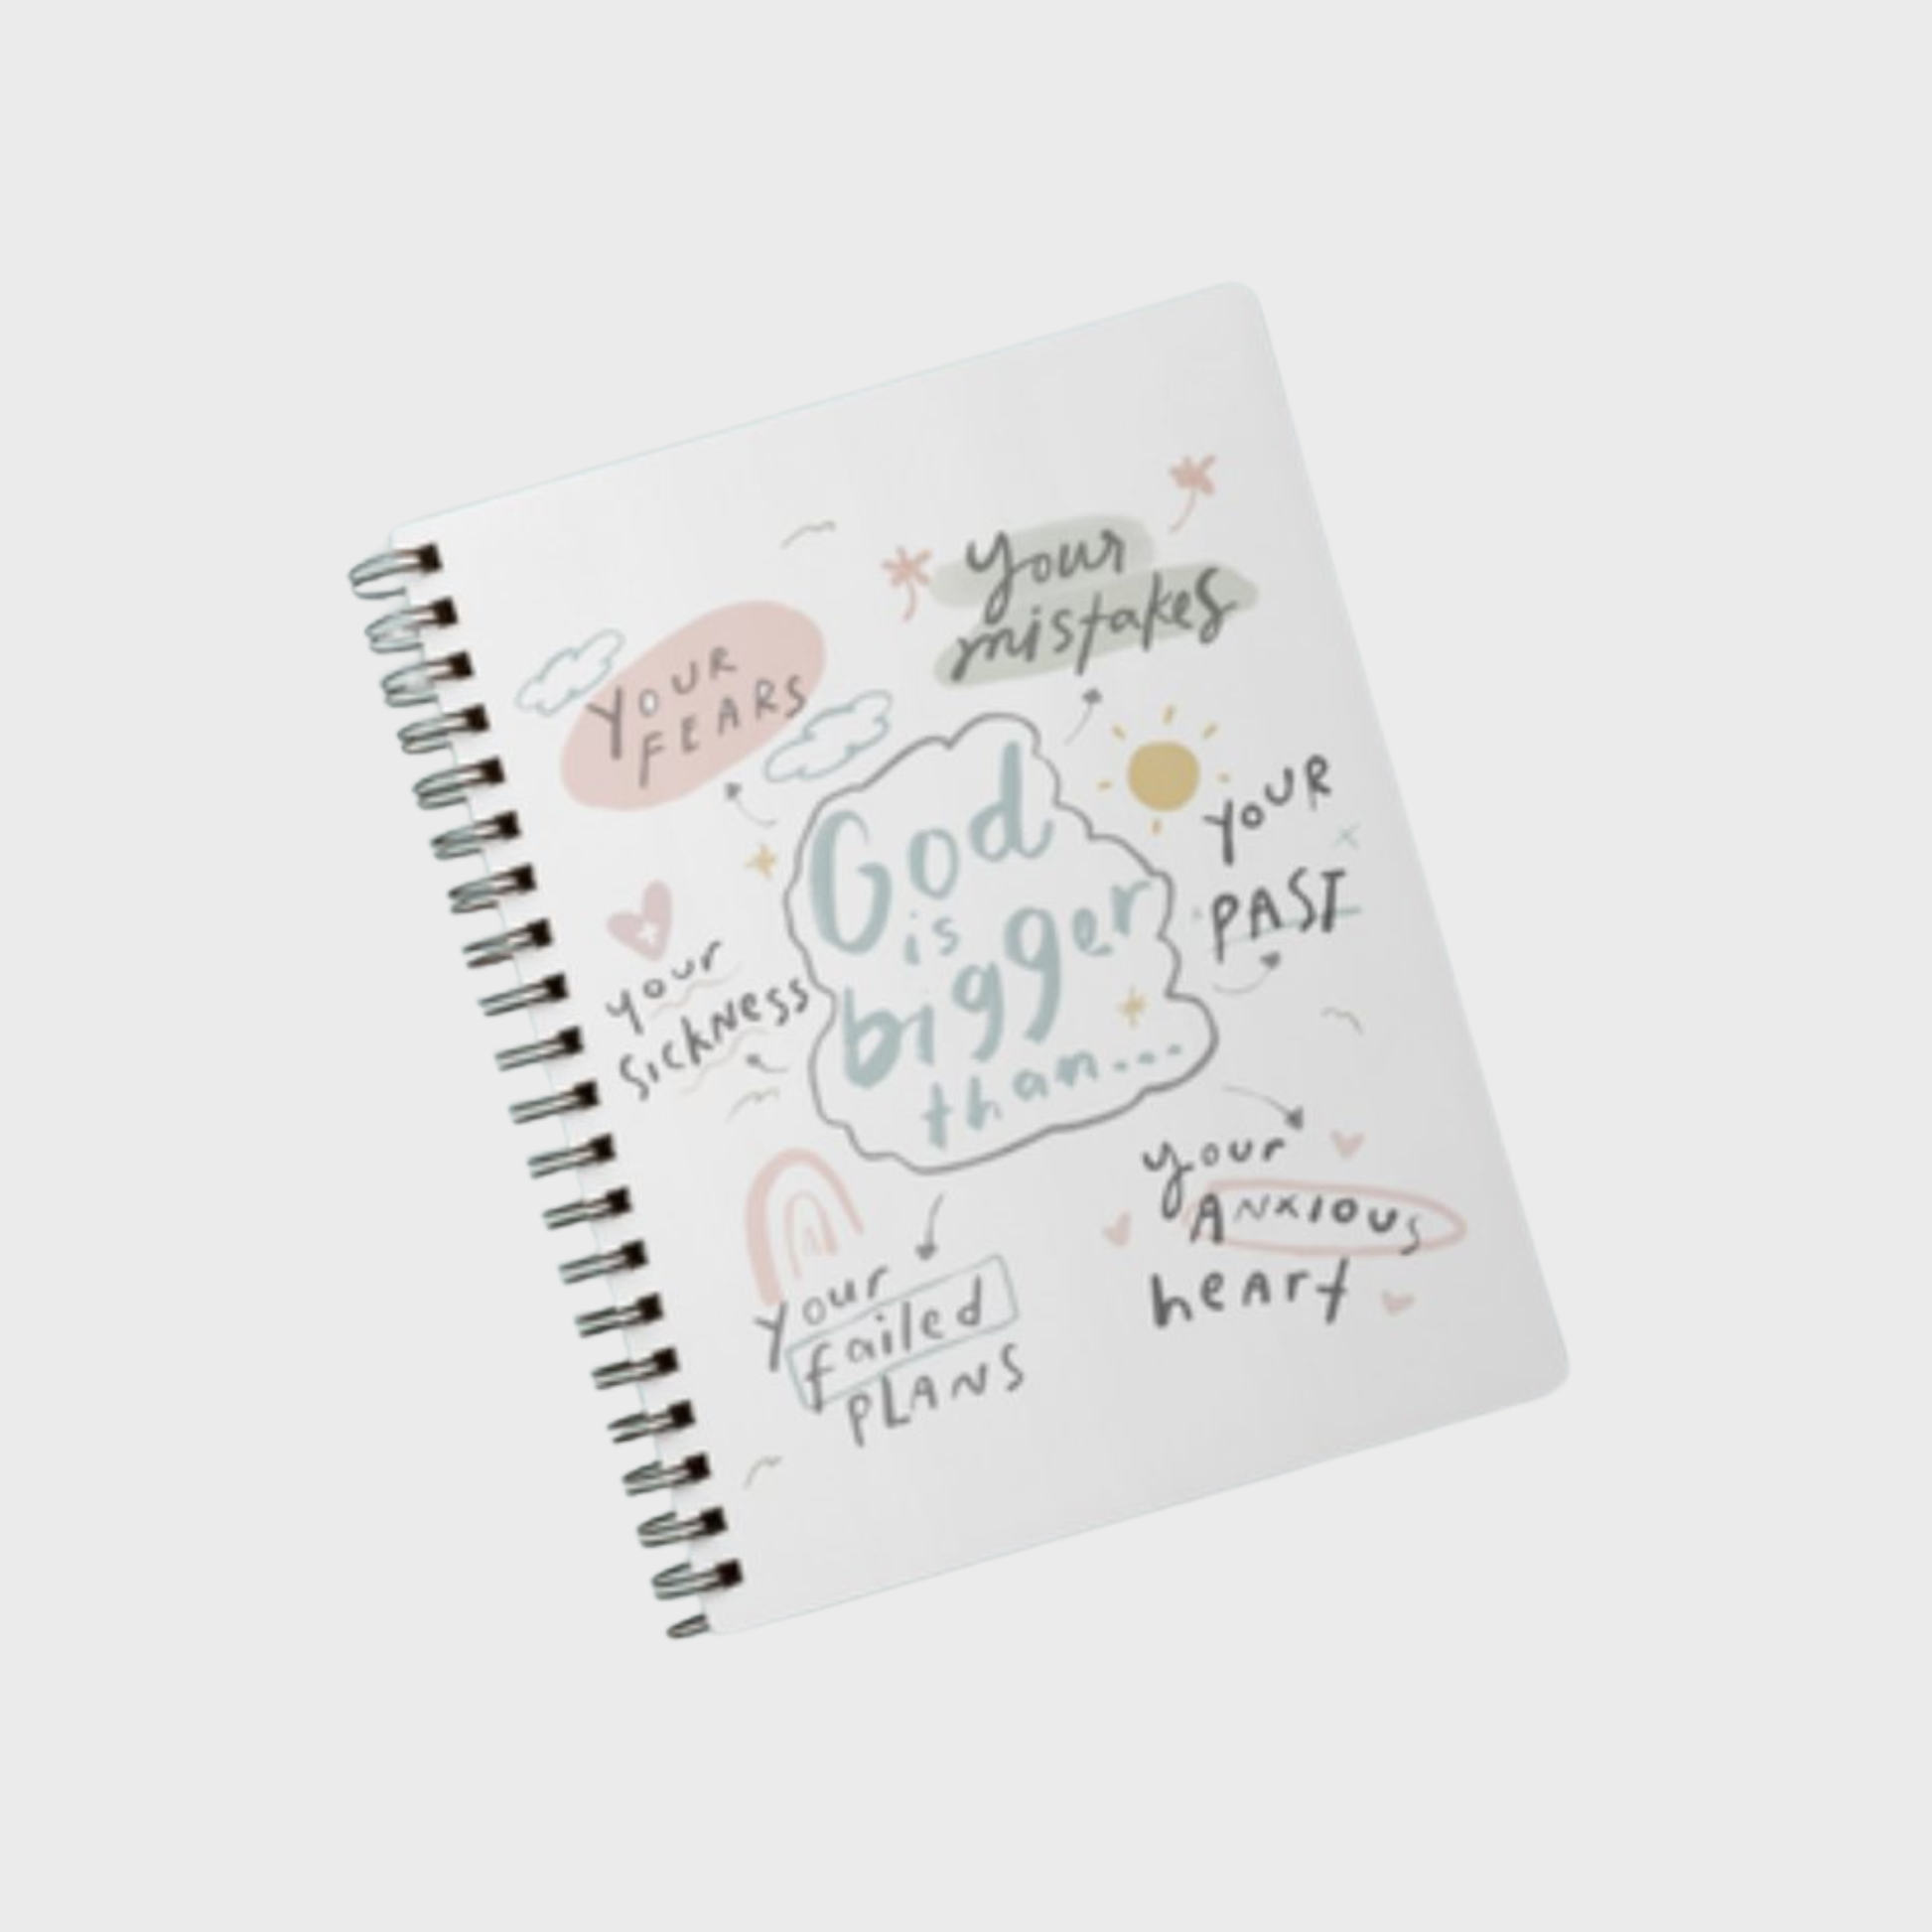 your
mistakes
YOUR
FEARS
God
is
bigger
than...
YOUR
PAST
your
sickness
your
ANXIOUS
heart
your
failed
PLANS